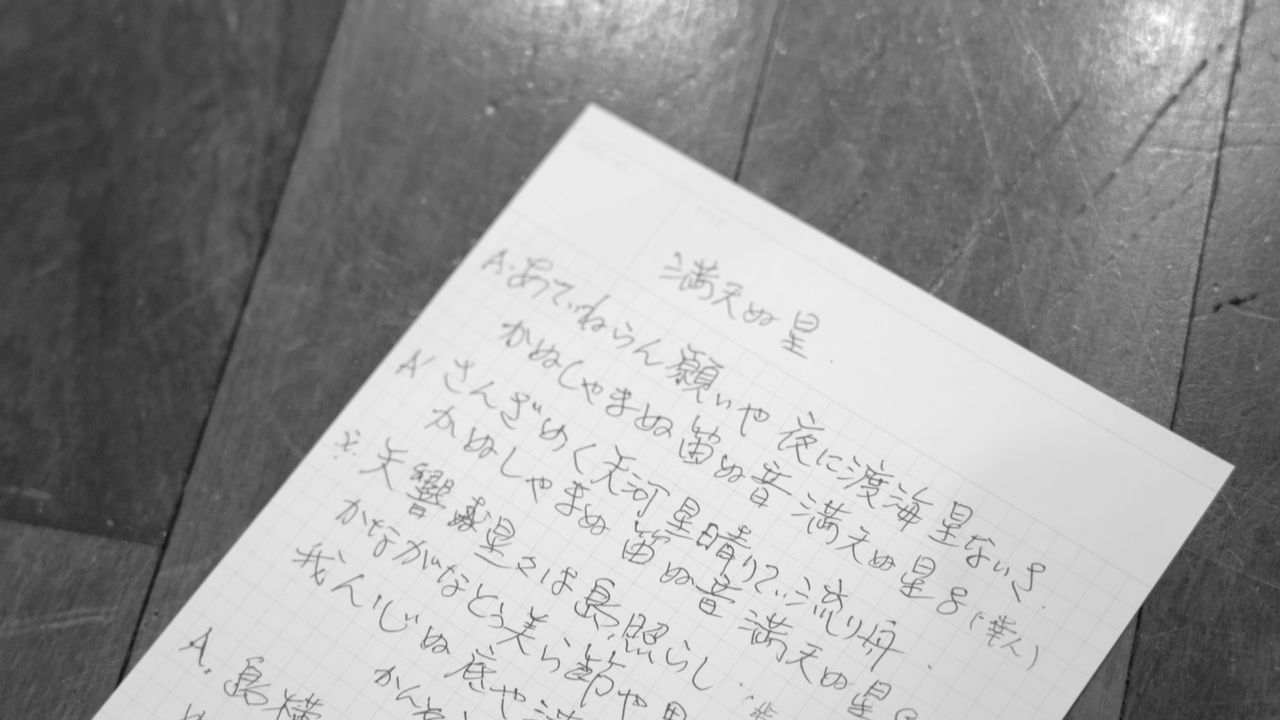 満天ぬ星
A. あてぃねらん願いや 夜に渡海星ないさ.
かぬしゃまぬ笛ぬ音 満天ぬ星
A' さんざめく天河星晴りてぃ流り舟.
かぬしゃまぬ笛ぬ音 満天ぬ星
※. 天響 星々は島照らし.
かながなとぅ美ら節や
我んいじぬ底や
A. 島